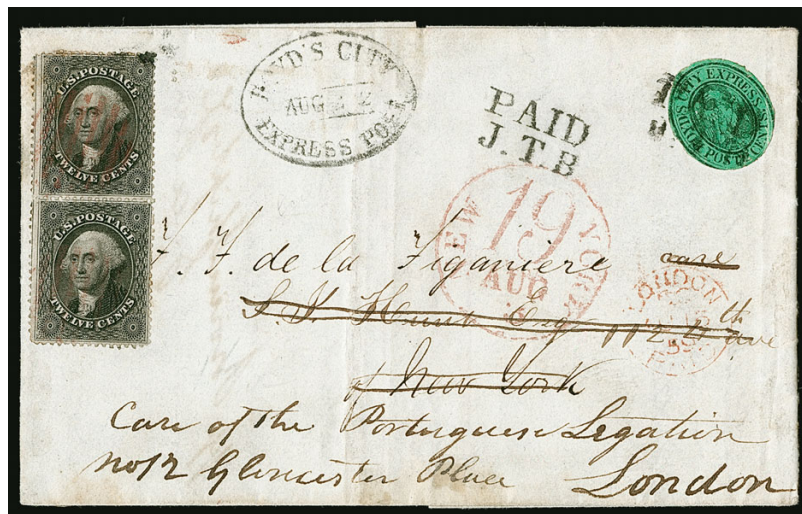 U.S. POSTAGE
TWELVE CENTS
U.S. POSTAGE
TWELVE CENTS
BOYD'S CITY
AUG 2 2
EXPRESS POST
PAID
J.T.B
BOYD'S CITY EXPRESS POST
NEW YORK
19
AUG
LONDON
59
F. F. de la Figaniere care
S. Y. Hunt Esq 112 4th ave
of New York
Care of the Portuguese Legation
no 12 Gloucester Place London